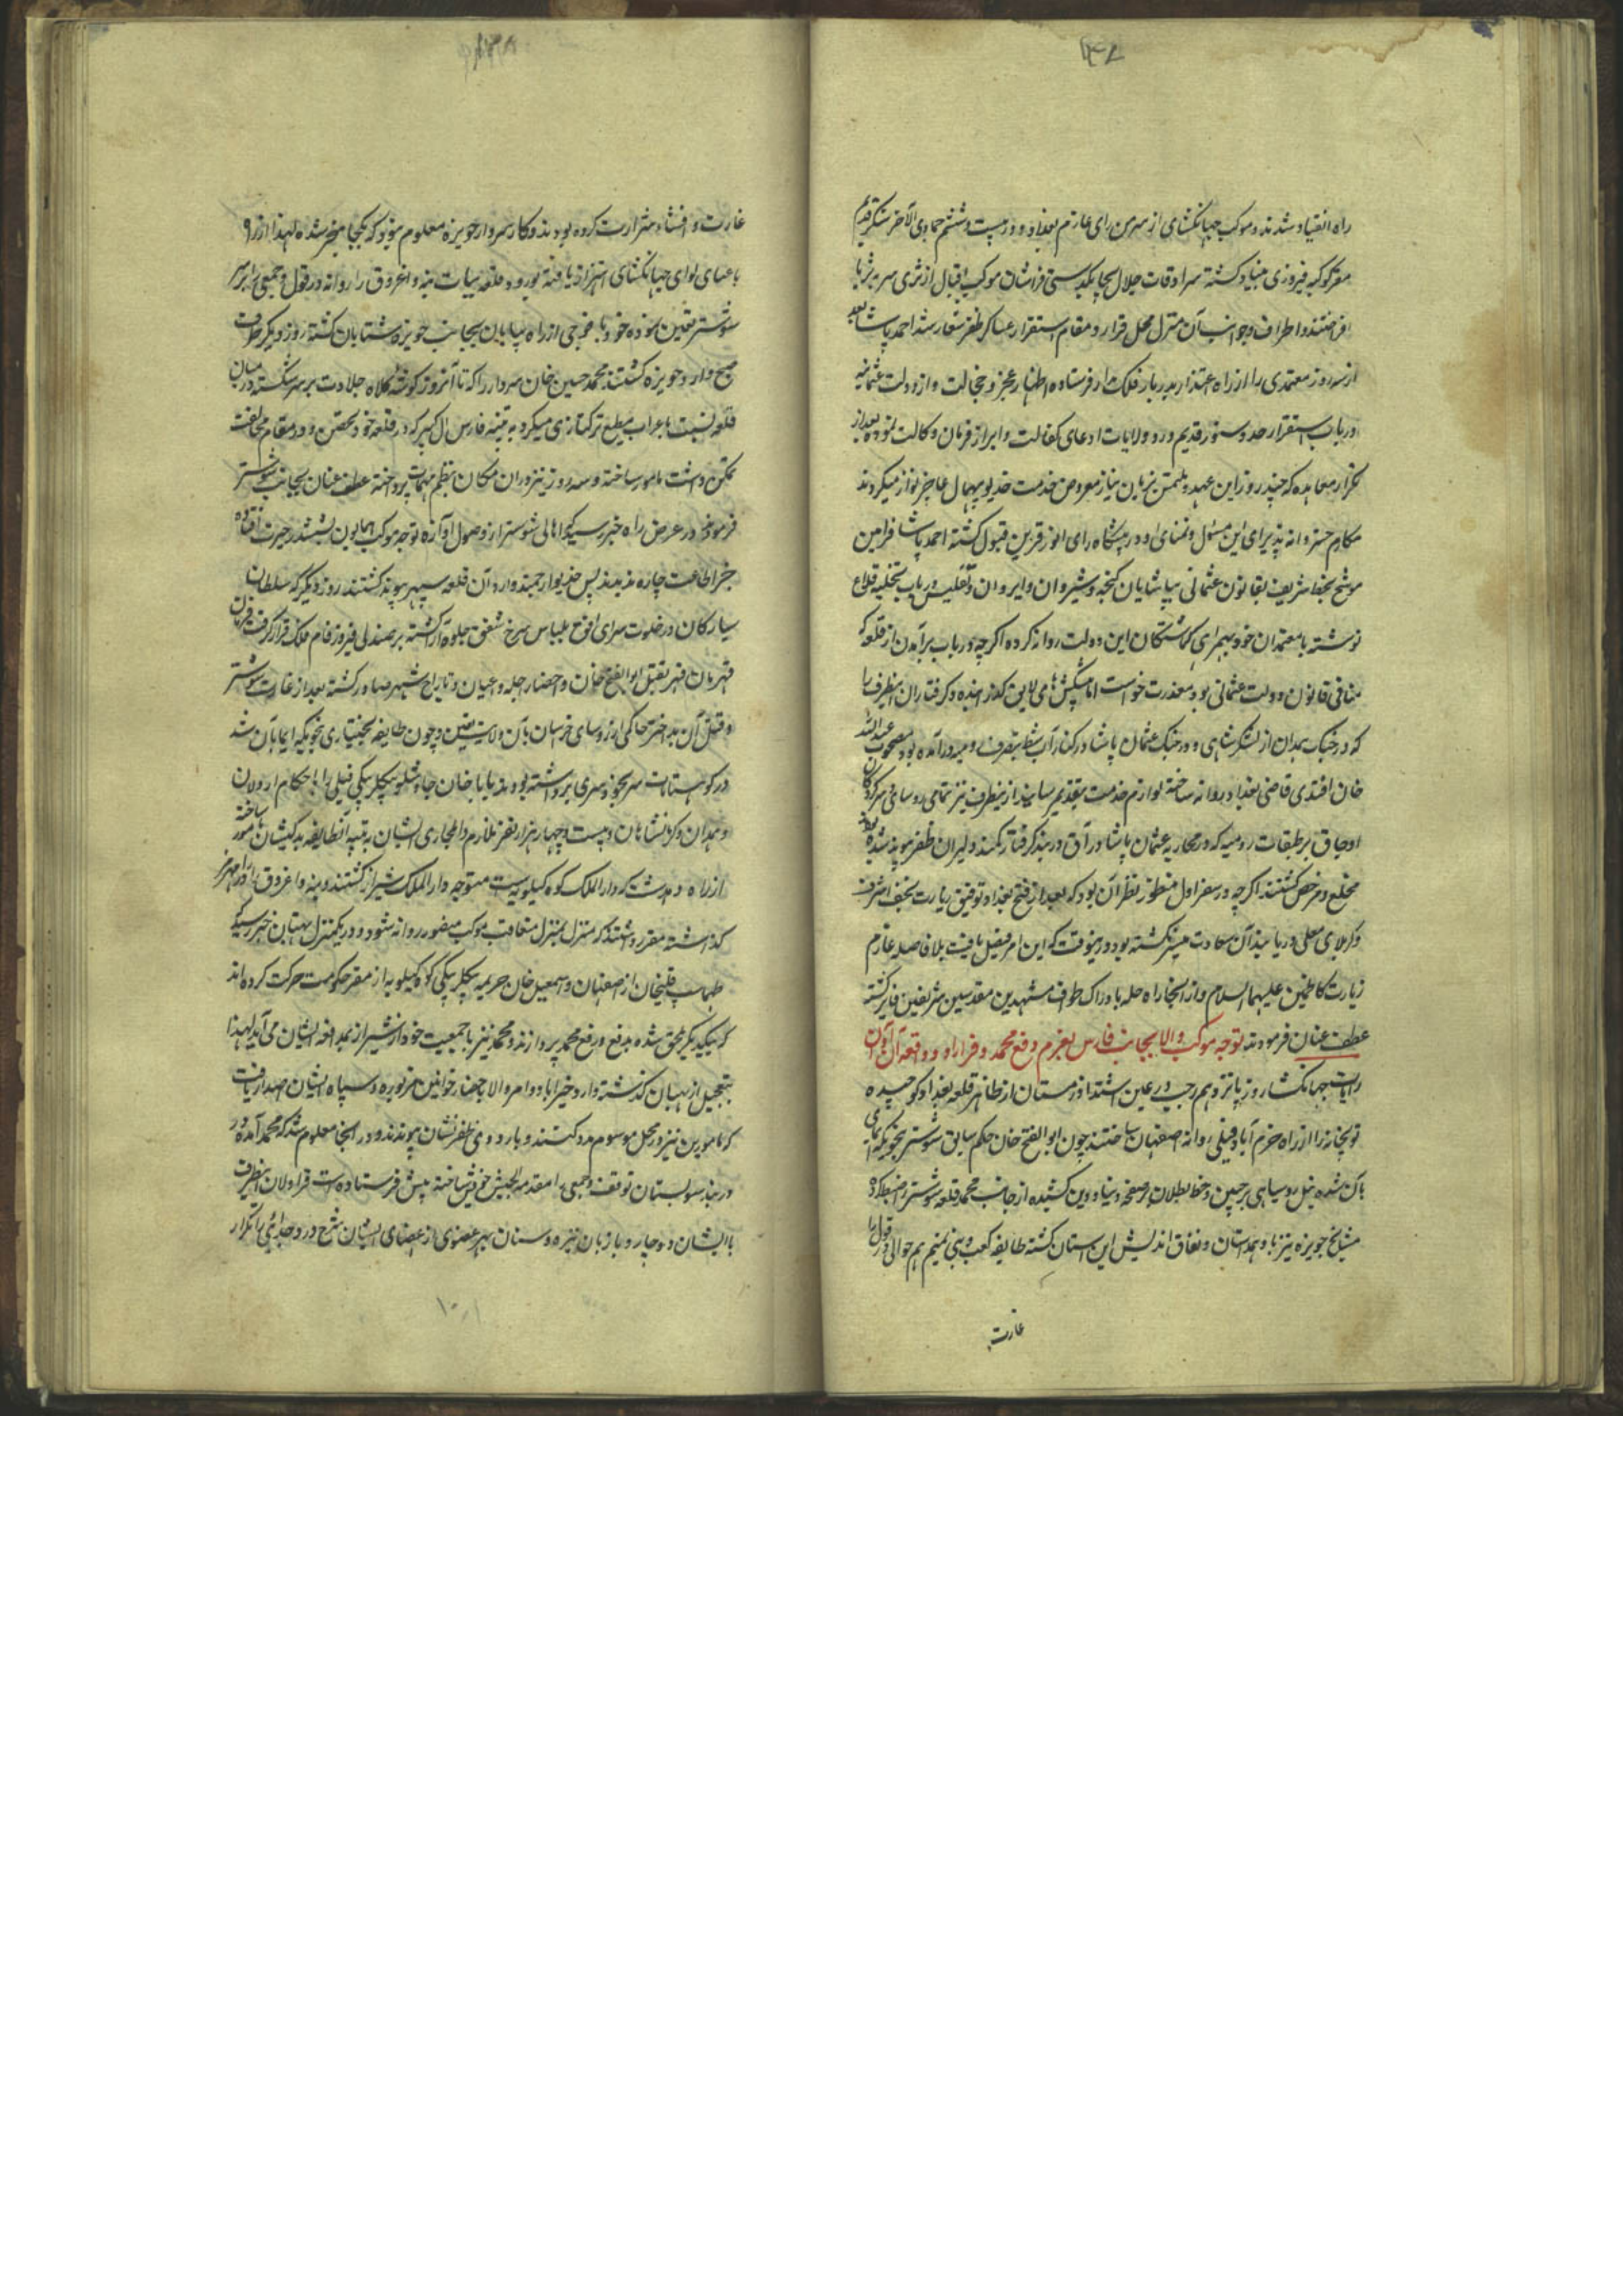 راه انقیاد شدند و موکب جهانگشای از سرمن رای عازم بغداد و در بیست و ششم جمادی الآخر سنگر قدیم
مقر کوکبه فیروزی بنیاد گشته سرادقات جلال بچابکدستی فراشان موکب اقبال از ثری سر بر ثریا
افراختند و اطراف و جوانب آن منزل محل قرار و مقام استقرار عساکر ظفر شعار شد احمد پاشا بعد
از سه روز معتمدی را از راه اعتذار بدربار فلک مدار فرستاده اظهار عجز و خجالت و از دولت عثمانیه
در باب استقرار حدود بدستور قدیم و رد ولایات ادعای کفالت و ابراز فرمان وکالت نموده بعد از
تکرار معاهده که چند روز این عهد و ملتمس بزبان نیاز معروض خدمت خدیو بیهمال عاجز نواز میکردند
مکارم خسروانه پذیرای این مسئول و تمنای او در پیشگاه رای انور قرین قبول گشته احمد پاشا فرامین
موشح بخط شریف بقانون عثمانی بپاشایان گنجه و شیروان و ایروان و تفلیس در باب تخلیه قلاع
نوشته با معتمدان خود بهمراهی گماشتگان این دولت روانه کرده اگرچه در باب برآمدن از قلعه که
منافی قانون دولت عثمانی بود معذرت خواست اما پیشکش های لایق گذرانیده و گرفتاران اینطرف را
که در جنگ همدان از لشکر شاهی و در جنگ عثمان پاشا در کنار آب شط بتصرف رومیه درآمده بود مصحوب عبدالله
خان افندی قاضی بغداد روانه ساخته لوازم خدمت بتقدیم رسانید از ینطرف نیز تمامی روسا و سرکردگان
اوجاق و طبقات رومیه که در محاربه عثمان پاشا در آق دربند گرفتار کمند دلیران ظفر موید شده بودند
مخلع و مرخص گشتند اگرچه در سفر اول منظور نظر آن بود که بعد از فتح بغداد توفیق زیارت نجف اشرف
و کربلای معلی دریابند آن سعادت میسر نگشته بود درینوقت که این امر فیصل یافت بلافاصله عازم
زیارت کاظمین علیهما السلام و از آنجا راه حله بادراک طواف مشهدین مقدسین شریفین فایز گشته
عطف عنان فرمودند توجه موکب والا بجانب فارس بعزم دفع محمد و فرار او و وقعه آن اوان
رایات جهانگشا روز پانزدهم رجب در عین اشتداد زمستان از ظاهر قلعه بغداد کوچیده
توپخانه را از راه خرم آباد فیلی روانه اصفهان ساختند چون ابوالفتح خان حکم سابق شوشتر بنحویکه ایمای
بآن شده نیل روسیاهی بر جبین و خط بطلان بر صفحه دنیا و دین کشیده از جانب محمد قلعه شوشتر را ضبط کرده
مشایخ حویزه نیز با او همداستان و نفاق اندیش این آستان گشته طایفه کعب و بنی تمیم هم حوالی دورق را
غارت
غارت و افشاء شرارت کرده بودند و کار سردار حویزه معلوم نبود که بکجا منجر شده لهذا از راه
باغسای لوای جهانگشای اهتزاز یافته بورود قلعه بیات بنه و اغروق را روانه دزفول و جمعی را بر سر
شوشتر تعیین نموده خود با فوجی از راه بیابان بجانب حویزه شتابان گشته روز دیگر طرف
صبح وارد حویزه گشتند محمد حسین خان سردار را که تا آنروز گوشه کلاه جلادت بر سر شکسته در میان
قلعه نسبت باعراب مطیع ترکتازی میکرد به تنبیه فارس آل کثیر که در قلعه خود تحصن و در مقام مخالفت
تمکن داشت مامور ساخته و سه روز نیز در ان مکان بنظم مهمات پرداخته عطف عنان بجانب شوشتر
فرمودند در عرض راه خبر رسید که اهالی شوشتر از وصول آوازه توجه موکب همایون بششدر حیرت افتاده
جز اطاعت چاره ندیدند پس خدیو ارجمند وارد آن قلعه سپهر پیوند گشتند روز دیگر که سلطان
سیارگان در خلوت سرای افق بلباس سرخ شفق جلوه گر گشته بر صندلی فیروزه فام فلک قرار گرفت فرمان
قهرمان قهر بقتل ابوالفتح خان و احضار اجله و اعیان و تاراج شهر صادر گشته بعد از غارت شوشتر
و قتل آن بد اختر حاکمی از روسای خرسان بآن ولایت تعیین و چون طایفه بختیاری بنحویکه ایما بآن شد
در کوهستانات سر بخودسری برداشته بودند بابا خان چاوشلو بیگلربیگی فیلی را با حکام اردلان
و همدان و کرمانشاهان و بیست و چهار هزار نفر ملازم والجاری ایشان به تنبیه آنطایفه بدکیشان مامور ساخته
از راه دهدشت که دارالملک کوه کیلویه است متوجه دارالملک شیراز گشتند و بنه و اغروق را در رامهرمز
گذاشته مقرر داشتند که منزل بمنزل متعاقب موکب منصور روانه شود و در یکمنزل بهبهان خبر رسید که
طهماسب قلیخان از اصفهان و اسمعیل خان خزیمه بیگلربیگی کوه کیلویه از مقر حکومت حرکت کرده اند
که بیکدیگر ملحق شده بدفع و رفع محمد پردازند و محمد نیز با جمعیت خود از شیراز بمدافعه ایشان می آید لهذا
بتعجیل از بهبهان گذشته وارد خیرآباد و امر والا باحضار خوانین مزبوره و سپاه ایشان صدور یافت
که مامورین نیز در محل موسوم بدوگنبدان وارد اردوی ظفر نشان پیوندند و در آنجا معلوم شد که محمد آمده در
دربند شولستان توقف و جمعی را مقدمة الجیش خویش ساخته پیش فرستاده است قراولان اینطرف
با ایشان دوچار و با زبان نیزه و سنان بهر عضوی از اعضای ایشان شرح درد جدائی را تکرار